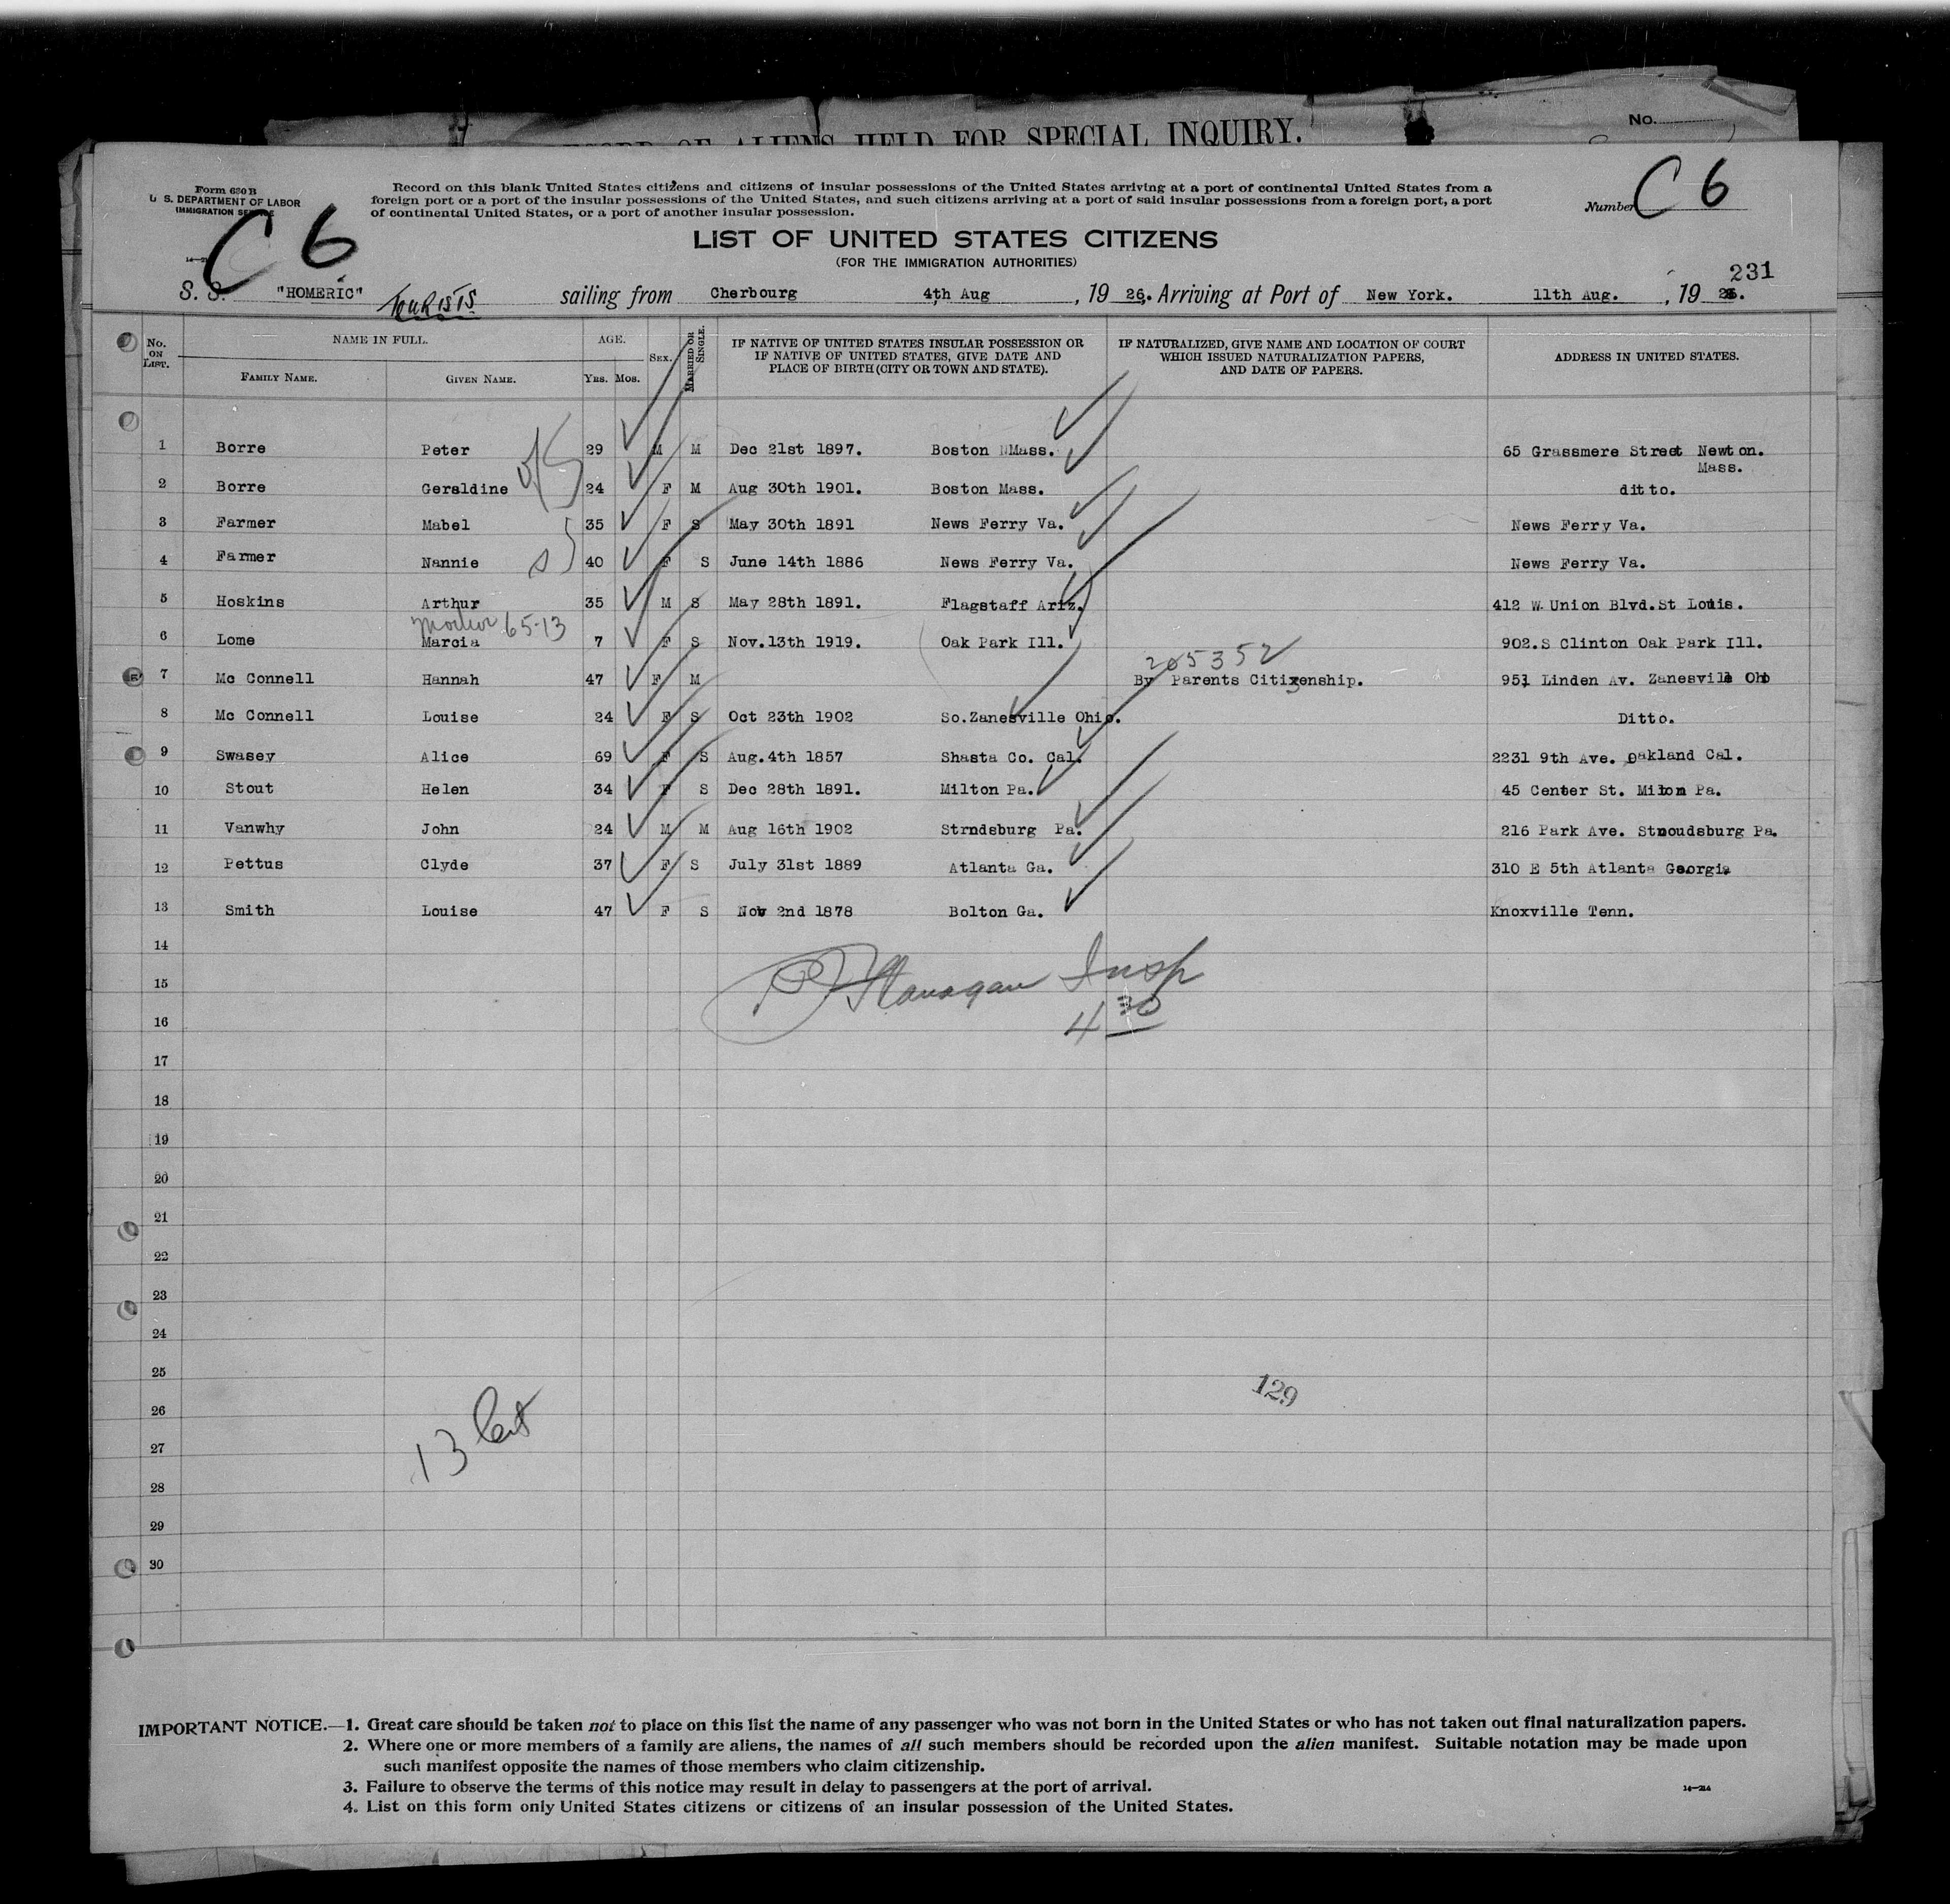 RECORD OF ALIENS HELD FOR SPECIAL INQUIRY.
No.
Form 630 B
U. S. DEPARTMENT OF LABOR
IMMIGRATION SERVICE
Record on this blank United States citizens and citizens of insular possessions of the United States arriving at a port of continental United States from a
foreign port or a port of the insular possessions of the United States, and such citizens arriving at a port of said insular possessions from a foreign port, a port
of continental United States, or a port of another insular possession.
Number C 6
C 6
LIST OF UNITED STATES CITIZENS
(FOR THE IMMIGRATION AUTHORITIES)
231
S. S. "HOMERIC" TOURISTS. sailing from Cherbourg 4th Aug , 19 26. Arriving at Port of New York. 11th Aug. , 19 26.
No. ON LIST.
NAME IN FULL.
FAMILY NAME.
GIVEN NAME.
AGE.
YRS. MOS.
SEX.
MARRIED OR SINGLE.
IF NATIVE OF UNITED STATES INSULAR POSSESSION OR
IF NATIVE OF UNITED STATES, GIVE DATE AND
PLACE OF BIRTH (CITY OR TOWN AND STATE).
IF NATURALIZED, GIVE NAME AND LOCATION OF COURT
WHICH ISSUED NATURALIZATION PAPERS,
AND DATE OF PAPERS.
ADDRESS IN UNITED STATES.
1 Borre Peter 29 M M Dec 21st 1897. Boston Mass. 65 Grassmere Street Newton.
Mass.
2 Borre Geraldine 24 F M Aug 30th 1901. Boston Mass. ditto.
3 Farmer Mabel 35 F S May 30th 1891 News Ferry Va. News Ferry Va.
4 Farmer Nannie 40 F S June 14th 1886 News Ferry Va. News Ferry Va.
5 Hoskins Arthur 35 M S May 28th 1891. Flagstaff Ariz. 412 W. Union Blvd. St Louis.
Mother 65-13
6 Lome Marcia 7 F S Nov. 13th 1919. Oak Park Ill. 902. S Clinton Oak Park Ill.
205352
7 Mc Connell Hannah 47 F M By Parents Citizenship. 951 Linden Av. Zanesville Oho
8 Mc Connell Louise 24 F S Oct 23th 1902 So. Zanesville Ohio. Ditto.
9 Swasey Alice 69 F S Aug. 4th 1857 Shasta Co. Cal. 2231 9th Ave. Oakland Cal.
10 Stout Helen 34 F S Dec 28th 1891. Milton Pa. 45 Center St. Milton Pa.
11 Vanwhy John 24 M M Aug 16th 1902 Strndsburg Pa. 216 Park Ave. Stroudsburg Pa.
12 Pettus Clyde 37 F S July 31st 1889 Atlanta Ga. 310 E 5th Atlanta Georgia
13 Smith Louise 47 F S Nov 2nd 1878 Bolton Ga. Knoxville Tenn.
14
15 Flanagan Insp
16 4 30
17
18
19
20
21
22
23
24
25
129
26
13
27
28
29
30
IMPORTANT NOTICE.—1. Great care should be taken not to place on this list the name of any passenger who was not born in the United States or who has not taken out final naturalization papers.
2. Where one or more members of a family are aliens, the names of all such members should be recorded upon the alien manifest. Suitable notation may be made upon
such manifest opposite the names of those members who claim citizenship.
3. Failure to observe the terms of this notice may result in delay to passengers at the port of arrival.
4. List on this form only United States citizens or citizens of an insular possession of the United States.